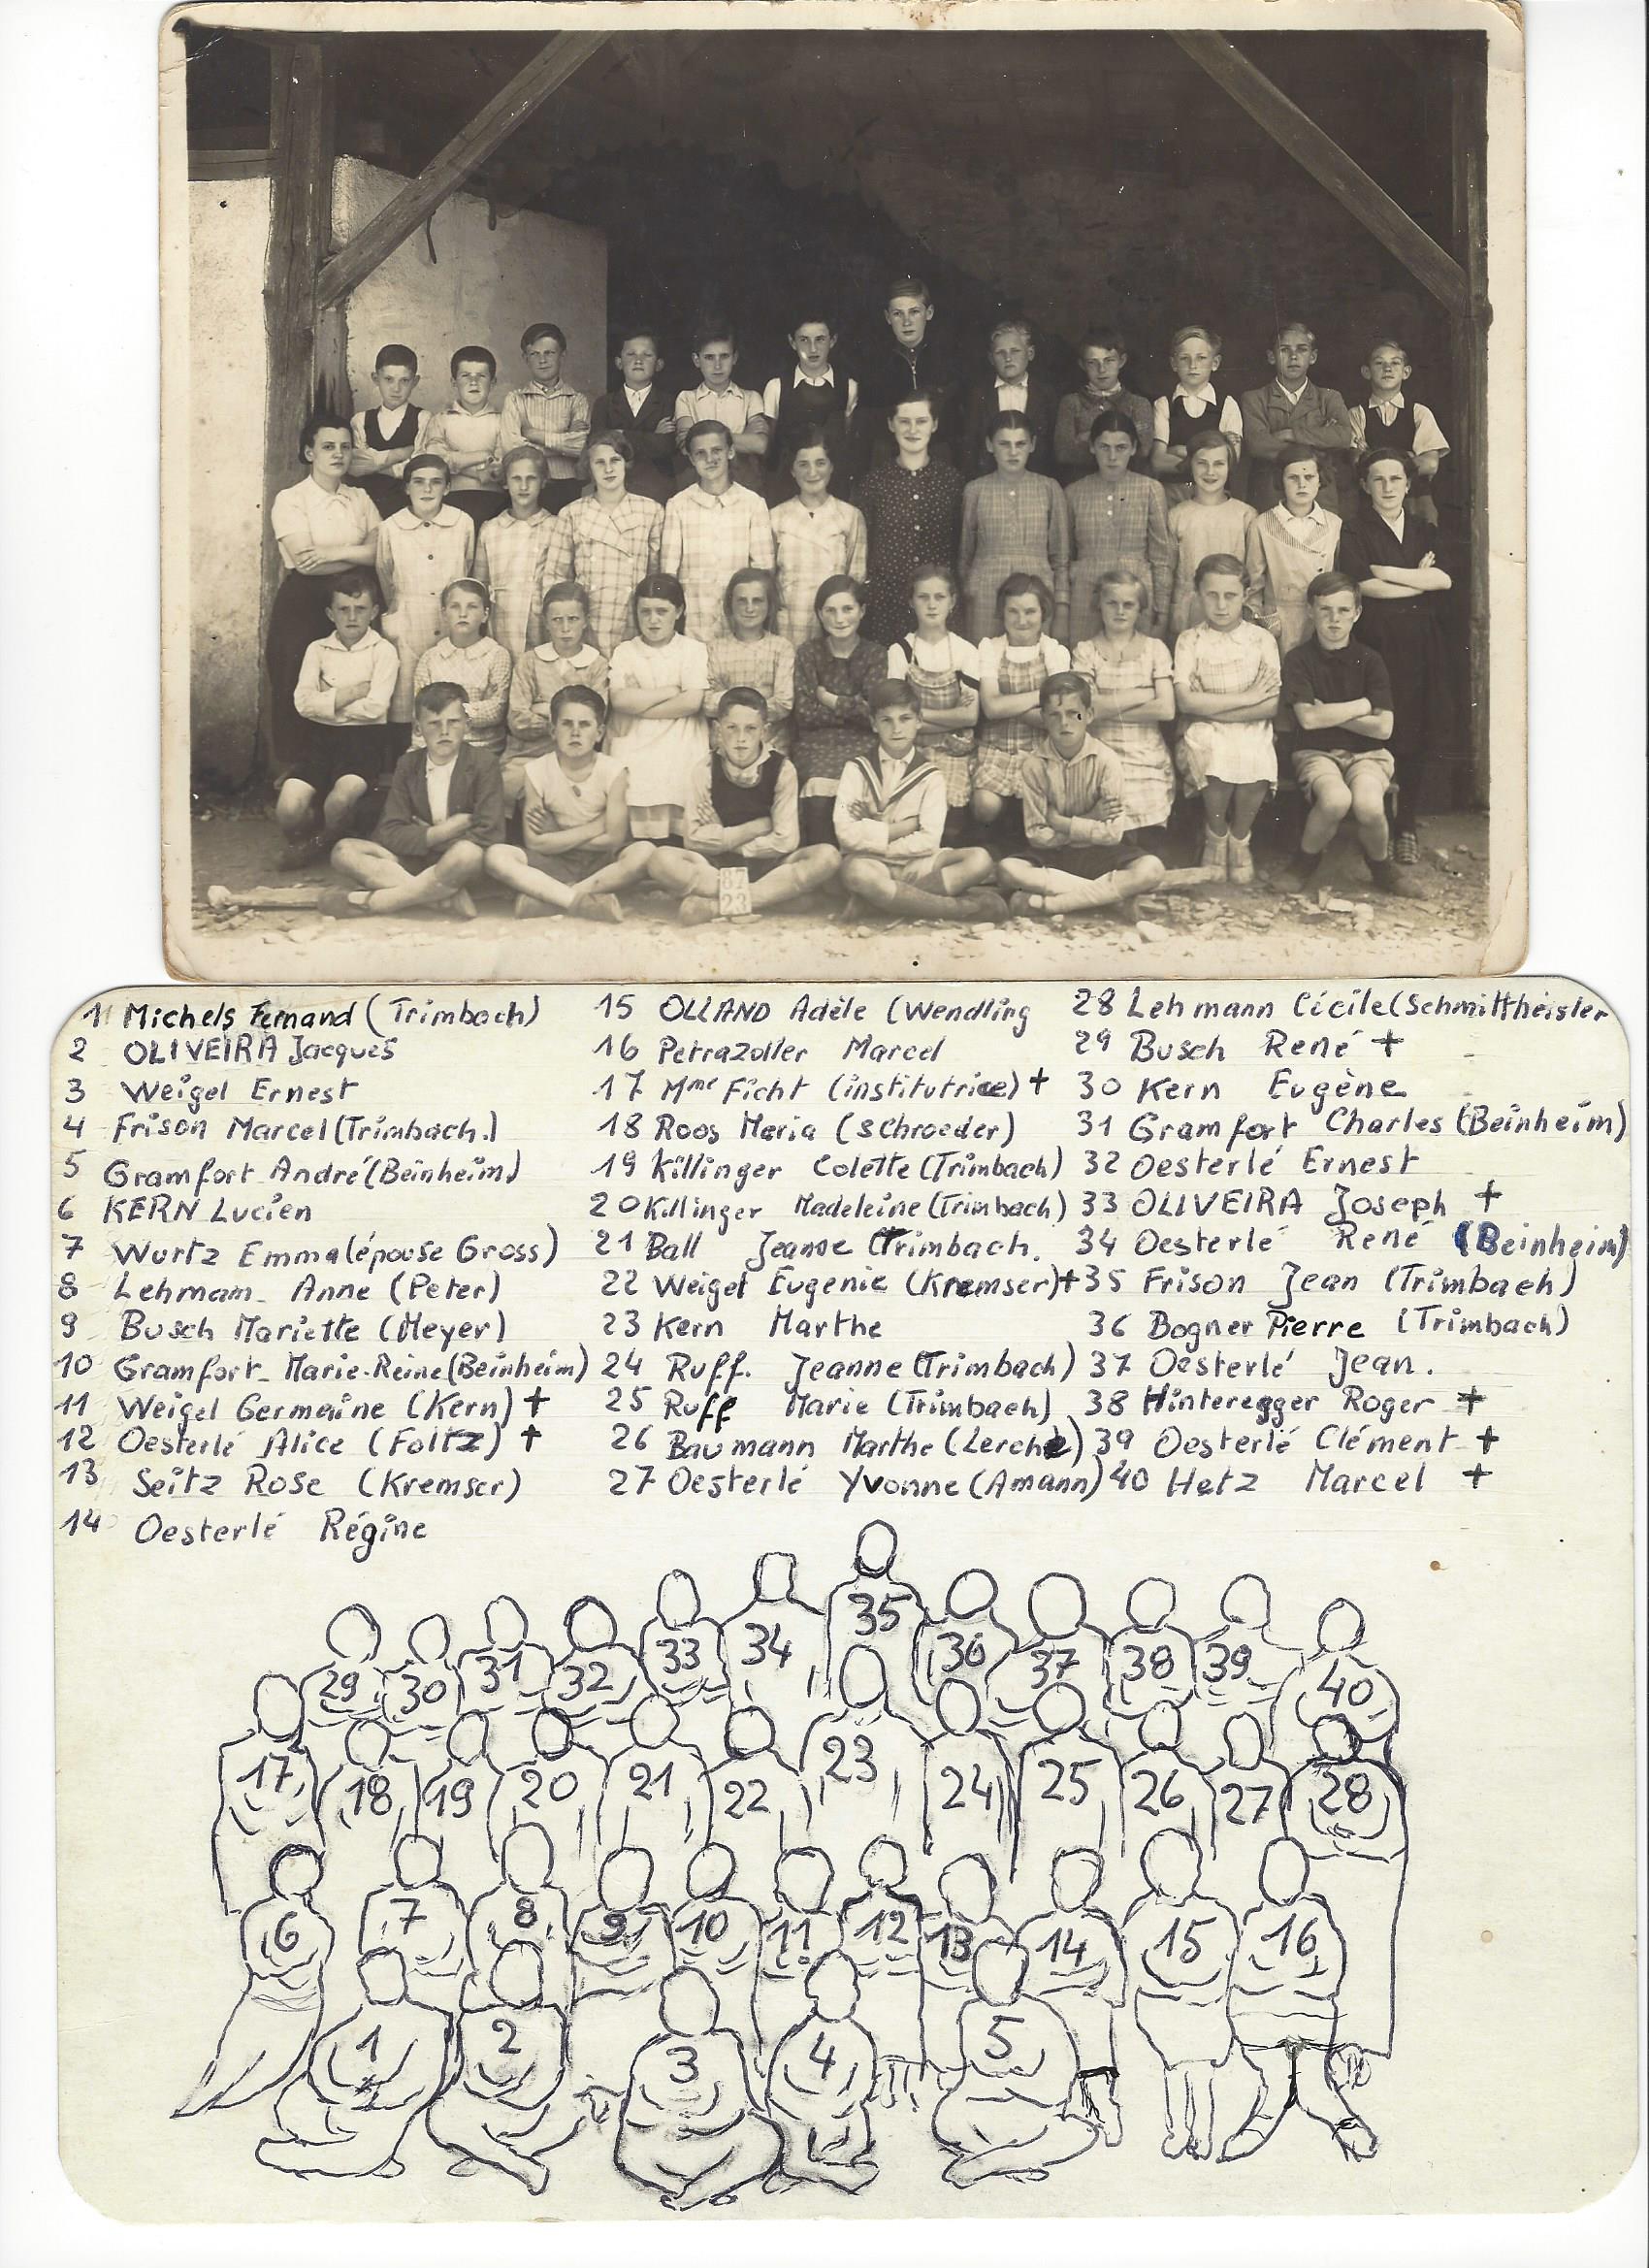 87
23
1 Michels Fernand (Trimbach)
2 OLIVEIRA Jacques
3 Weigel Ernest
4 Frison Marcel (Trimbach.)
5 Gramfort André (Beinheim)
6 KERN Lucien
7 Wurtz Emma (épouse Gross)
8 Lehmam Anne (Peter)
9 Busch Mariette (Meyer)
10 Gramfort Marie-Reine (Beinheim)
11 Weigel Germaine (Kern) +
12 Oesterlé Alice (Foltz) +
13 Seitz Rose (Kremser)
14 Oesterlé Régine
15 OLLAND Adèle (Wendling
16 Petrazoller Marcel
17 Mme Ficht (institutrice) +
18 Roos Maria (Schroeder)
19 Killinger Colette (Trimbach)
20 Killinger Madeleine (Trimbach)
21 Ball Jeanne (Trimbach.
22 Weigel Eugenie (Kremser) +
23 Kern Marthe
24 Ruff. Jeanne (Trimbach)
25 Ruff Marie (Trimbach)
26 Baumann Marthe (Lerche)
27 Oesterlé Yvonne (Amann)
28 Lehmann Cécile (Schmittheisler
29 Busch René +
30 Kern Eugène
31 Gramfort Charles (Beinheim)
32 Oesterlé Ernest
33 OLIVEIRA Joseph +
34 Oesterlé René (Beinheim)
35 Frison Jean (Trimbach)
36 Bogner Pierre (Trimbach)
37 Oesterlé Jean.
38 Hinteregger Roger +
39 Oesterlé Clément +
40 Hetz Marcel +
29 30 31 32 33 34 35 36 37 38 39 40
17 18 19 20 21 22 23 24 25 26 27 28
6 7 8 9 10 11 12 13 14 15 16
1 2 3 4 5